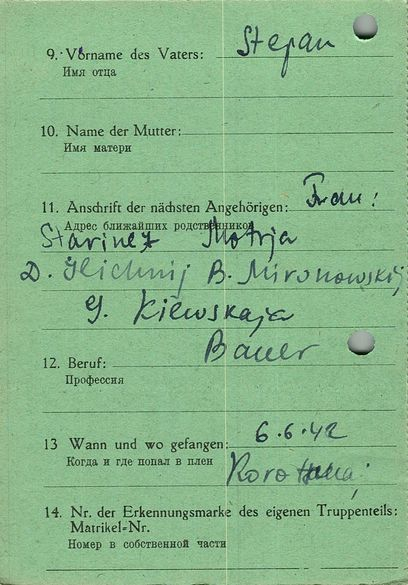 9. Vorname des Vaters: Stepan
Имя отца
10. Name der Mutter:
Имя матери
11. Anschrift der nächsten Angehörigen: Frau:
Адрес ближайших родственников
Starinez Motrja
D. B. Mironowskij
G. Kiewskaja
12. Beruf: Bauer
Профессия
13 Wann und wo gefangen: 6.6.42
Когда и где попал в плен
14. Nr. der Erkennungsmarke des eigenen Truppenteils:
Matrikel-Nr.
Номер в собственной части